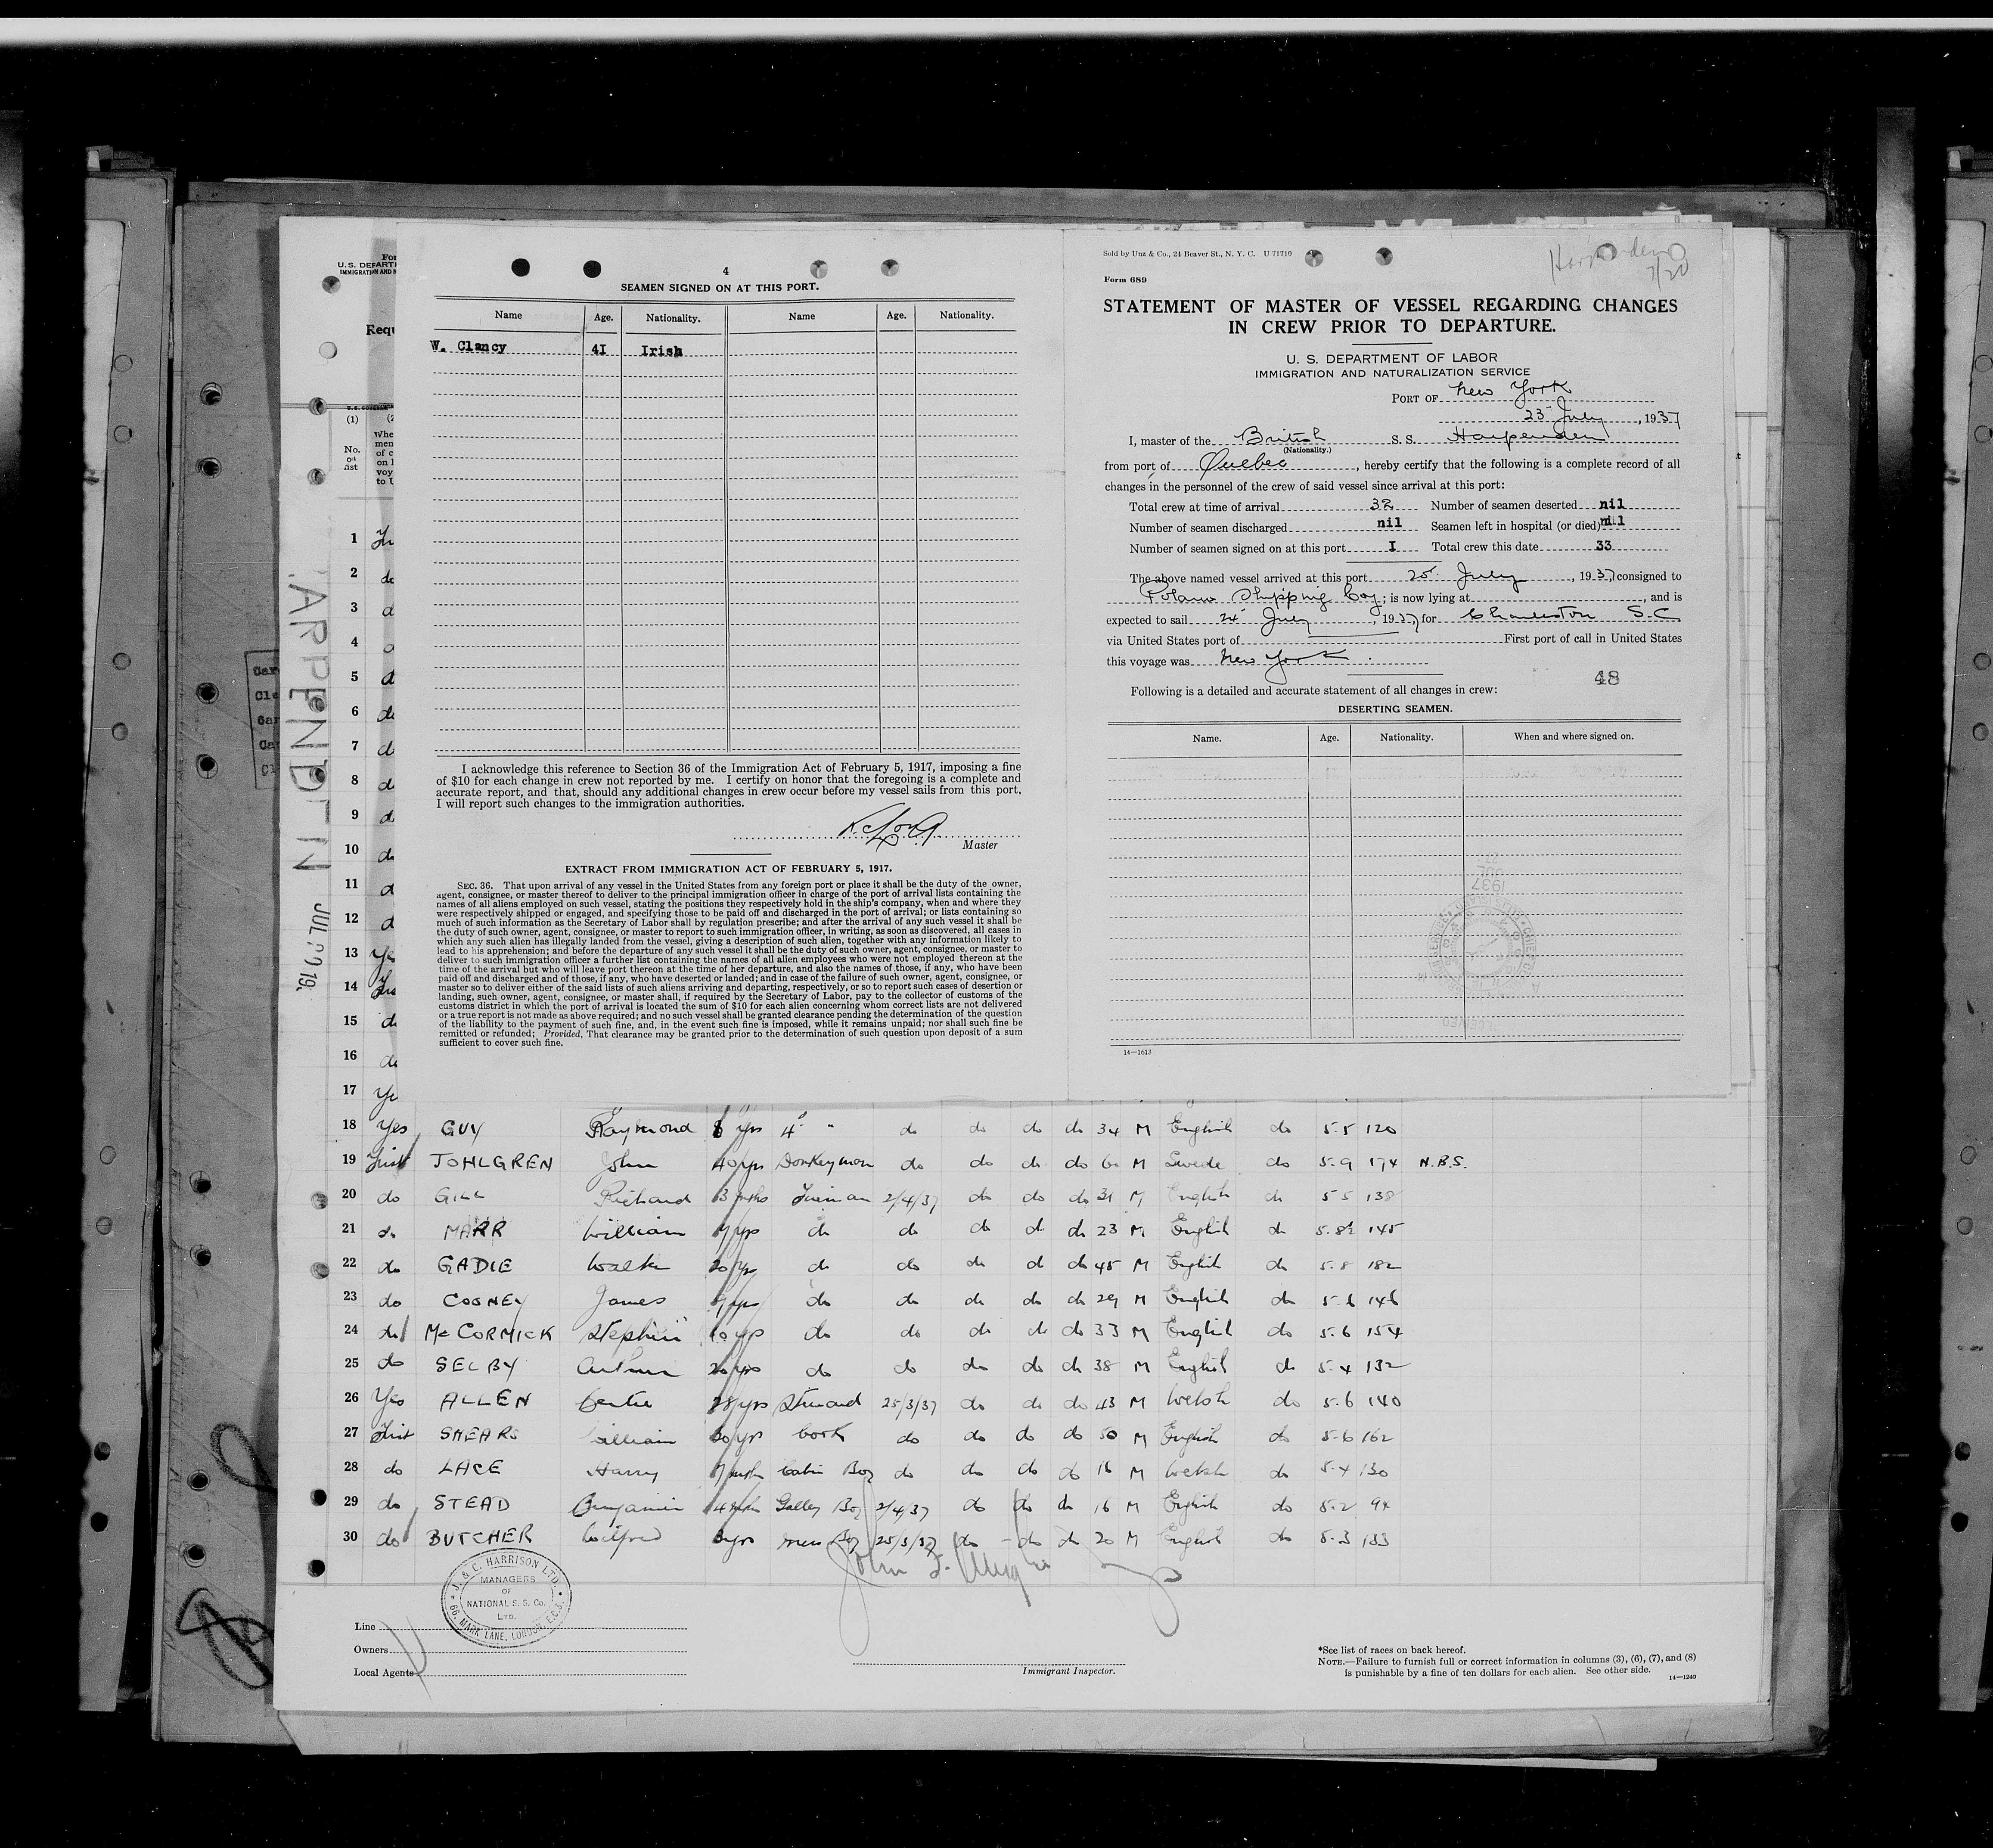 For
U. S. DEPARTM
IMMIGRATION AND N
Requ
(1)
No.
on
list
Whe
men
of c
on l
voy
to U
HARPENDEN JUL 20 19
4
SEAMEN SIGNED ON AT THIS PORT.
Name Age. Nationality. Name Age. Nationality.
W. Clancy 4I Irish
I acknowledge this reference to Section 36 of the Immigration Act of February 5, 1917, imposing a fine
of $10 for each change in crew not reported by me. I certify on honor that the foregoing is a complete and
accurate report, and that, should any additional changes in crew occur before my vessel sails from this port,
I will report such changes to the immigration authorities.
Master
EXTRACT FROM IMMIGRATION ACT OF FEBRUARY 5, 1917.
SEC. 36. That upon arrival of any vessel in the United States from any foreign port or place it shall be the duty of the owner,
agent, consignee, or master thereof to deliver to the principal immigration officer in charge of the port of arrival lists containing the
names of all aliens employed on such vessel, stating the positions they respectively hold in the ship's company, when and where they
were respectively shipped or engaged, and specifying those to be paid off and discharged in the port of arrival; or lists containing so
much of such information as the Secretary of Labor shall by regulation prescribe; and after the arrival of any such vessel it shall be
the duty of such owner, agent, consignee, or master to report to such immigration officer, in writing, as soon as discovered, all cases in
which any such alien has illegally landed from the vessel, giving a description of such alien, together with any information likely to
lead to his apprehension; and before the departure of any such vessel it shall be the duty of such owner, agent, consignee, or master to
deliver to such immigration officer a further list containing the names of all alien employees who were not employed thereon at the
time of the arrival but who will leave port thereon at the time of her departure, and also the names of those, if any, who have been
paid off and discharged and of those, if any, who have deserted or landed; and in case of the failure of such owner, agent, consignee, or
master so to deliver either of the said lists of such aliens arriving and departing, respectively, or so to report such cases of desertion or
landing, such owner, agent, consignee, or master shall, if required by the Secretary of Labor, pay to the collector of customs of the
customs district in which the port of arrival is located the sum of $10 for each alien concerning whom correct lists are not delivered
or a true report is not made as above required; and no such vessel shall be granted clearance pending the determination of the question
of the liability to the payment of such fine, and, in the event such fine is imposed, while it remains unpaid; nor shall such fine be
remitted or refunded; Provided, That clearance may be granted prior to the determination of such question upon deposit of a sum
sufficient to cover such fine.
Sold by Unz & Co., 24 Beaver St., N. Y. C. U 71710
Harpenden
7/20
Form 689
STATEMENT OF MASTER OF VESSEL REGARDING CHANGES
IN CREW PRIOR TO DEPARTURE.
U. S. DEPARTMENT OF LABOR
IMMIGRATION AND NATURALIZATION SERVICE
PORT OF New York
23 July, 1937
I, master of the British S. S. Harpenden
(Nationality.)
from port of Quebec, hereby certify that the following is a complete record of all
changes in the personnel of the crew of said vessel since arrival at this port:
Total crew at time of arrival 32 Number of seamen deserted nil
Number of seamen discharged nil Seamen left in hospital (or died) nil
Number of seamen signed on at this port I Total crew this date 33
The above named vessel arrived at this port 20 July, 1937, consigned to
Shipping Coy; is now lying at , and is
expected to sail 24 July, 1937, for Charleston S.C
via United States port of First port of call in United States
this voyage was New York.
48
Following is a detailed and accurate statement of all changes in crew:
DESERTING SEAMEN.
Name. Age. Nationality. When and where signed on.
14—1613
1
2 do
3 d
4 d
5 d
6 do
7 d
8 do
9 d
10 do
11 d
12 d
13 Ye
14
15 do
16 do
17 Ye
18 Yes GUY Raymond 8 yrs 4" " do do do do 34 M English do 5.5 120
19 First JOHLGREN John 40 yrs Donkeyman do do do do 60 M Swede do 5.9 174 N.B.S.
20 do GILL Richard 3 mths Fireman 2/4/37 do do do 31 M English do 5 5 138
21 do MARR William 7 yrs do do do do do 23 M English do 5.8½ 145
22 do GADIE Walter 20 yrs do do do do do 45 M English do 5.8 182
23 do COONEY James 9 yrs do do do do do 29 M English do 5.6 146
24 do McCORMICK Stephen 10 yrs do do do do do 33 M English do 5.6 154
25 do SELBY Arthur 20 yrs do do do do do 38 M English do 5.4 132
26 Yes ALLEN Bertie 28 yrs Steward 25/3/37 do do do 43 M Welsh do 5.6 140
27 First SHEARS William 30 yrs Cook do do do do 50 M English do 5.6 162
28 do LACE Harry 7 mths Cabin Boy do do do do 16 M Welsh do 5.4 130
29 do STEAD Benjamin 4 mths Galley Boy 2/4/37 do do do 16 M English do 5.2 94
30 do BUTCHER Wilfred 3 yrs Mess Boy 25/3/37 do do do 20 M English do 5.3 133
J. & C. HARRISON LTD.
MANAGERS
OF
NATIONAL S. S. Co.
LTD.
66, MARK LANE, LONDON, E.C.3.
Line
Owners
Local Agents
John F.
Immigrant Inspector.
*See list of races on back hereof.
NOTE.—Failure to furnish full or correct information in columns (3), (6), (7), and (8)
is punishable by a fine of ten dollars for each alien. See other side. 14—1240